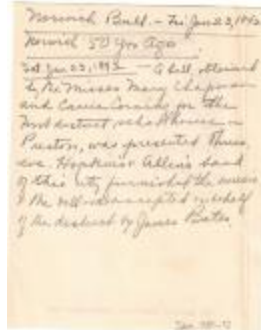 Norwich Bull. - Fri Jan 23, 1942
Norwich 50 Yrs Ago.
Sat Jan 23, 1892 - A bell, obtained
by the Misses Mary Chapman
and Carrie Corning for the
first district schoolhouse in
Preston, was presented Thurs.
eve. Hopkins & Allen's band
of this city furnished the music
& the bell was accepted in behalf
of the district by James Bates